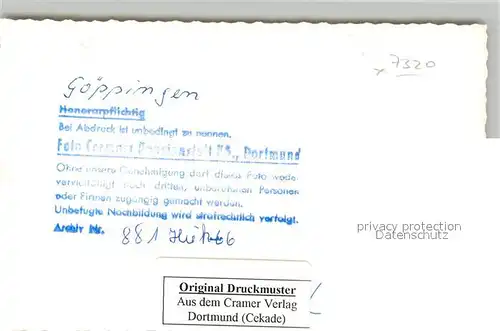 7320
Göppingen
Honorarpflichtig
Bei Abdruck ist unbedingt zu nennen.
Foto Cramer Dortmund
Ohne unsere Genehmigung darf dieses Foto weder
vervielfältigt noch dritten, unberufenen Personen
oder Firmen zugängig gemacht werden.
Unbefugte Nachbildung wird strafrechtlich verfolgt.
Archiv Nr. 881
privacy protection
Datenschutz
Original Druckmuster
Aus dem Cramer Verlag
Dortmund (Cekade)